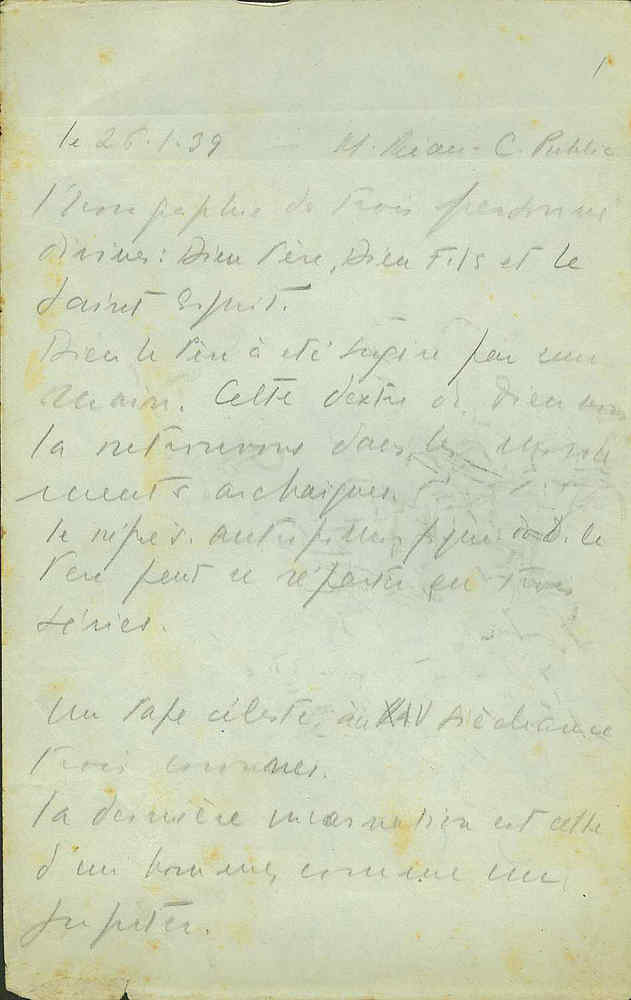 1
le 26.1.39 M. Réau - C. Public
l'Iconographie de trois personnes
divines: Dieu Père, Dieu Fils et le
Saint Esprit.
Dieu le Père a été par une
main. Cette dextre de Dieu nous
la retrouvons dans les monu
ments archaïques.
le représ. de D. le
Père peut se répartir en trois
séries.
Un Pape céleste, au XIV siècle avec
trois couronnes.
la dernière incarnation est celle
d'un homme, comme un
Jupiter.